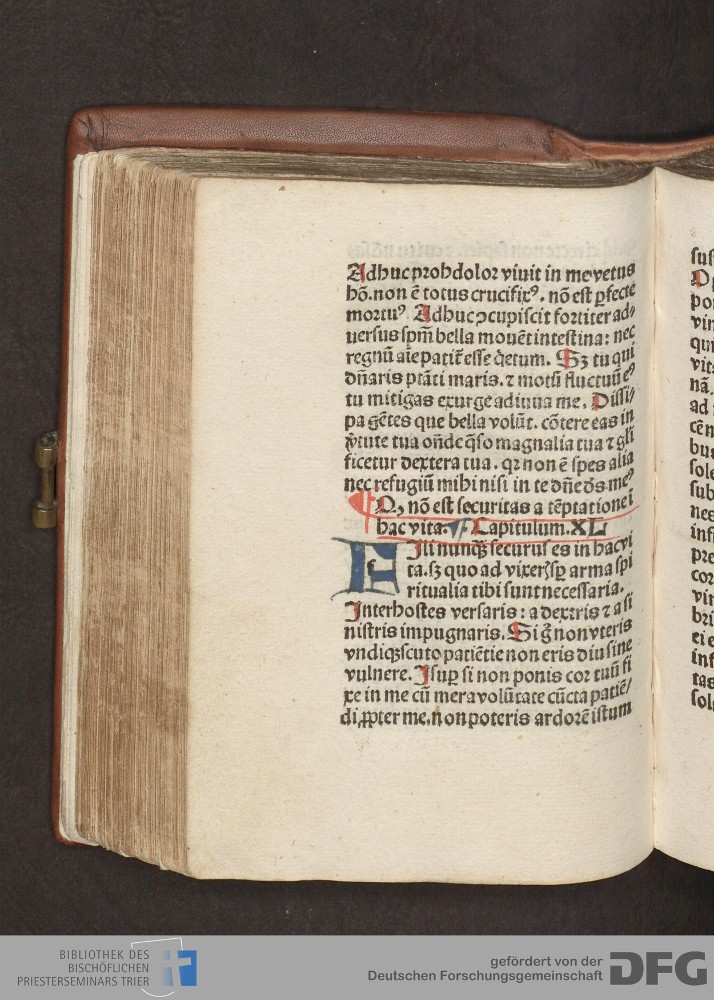 Adhuc prohdolor viuit in me vetus
hõ. non ē totus crucifixꝰ. nõ est ꝑfecte
mortuꝰ Adhuc ↄcupiscit fortiter ad/
uersus spm̃ bella mouēt intestina: nec
regnũ aĩe patit᷑ esse q̇etum. Sꝫ tu qui
dñaris ptãti maris. ⁊ motũ fluctuũ eꝰ
tu mitigas exurge adiuua me. Dissi/
pa gētes que bella volũt. cõtere eas in
v̓tute tua oñde q̃so magnalia tua ⁊ gl̃i
ficetur dextera tua. qꝛ non ē spes alia
nec refugiũ mihi nisi in te dñe ds̃ meꝰ
¶ Qꝫ nõ est securitas a tēptatione ĩ
hac vita. ¶ Capitulum. XL
Fili nunqꝫ̃ securus es in hac vi
ta. sꝫ quo ad vixerꝭ sꝑ arma spi
ritualia tibi sunt necessaria.
Inter hostes versaris: a dextris ⁊ a si
nistris impugnaris. Si g̊ non vteris
vndiqꝫ scuto patiētie non eris diu sine
vulnere. Isuꝑ si non ponis cor tuũ fi
xe in me cũ mera volũtate cũcta patiē/
di ꝓpter me. non poteris ardorē istum
sus
vin
qui
vit
nã.
ad
cēn
bu
sole
sub
nes
inf
pre
cor
vir
bri
ei e
inf
tas
sol
BIBLIOTHEK DES
BISCHÖFLICHEN
PRIESTERSEMINARS TRIER
gefördert von der
Deutschen Forschungsgemeinschaft
DFG